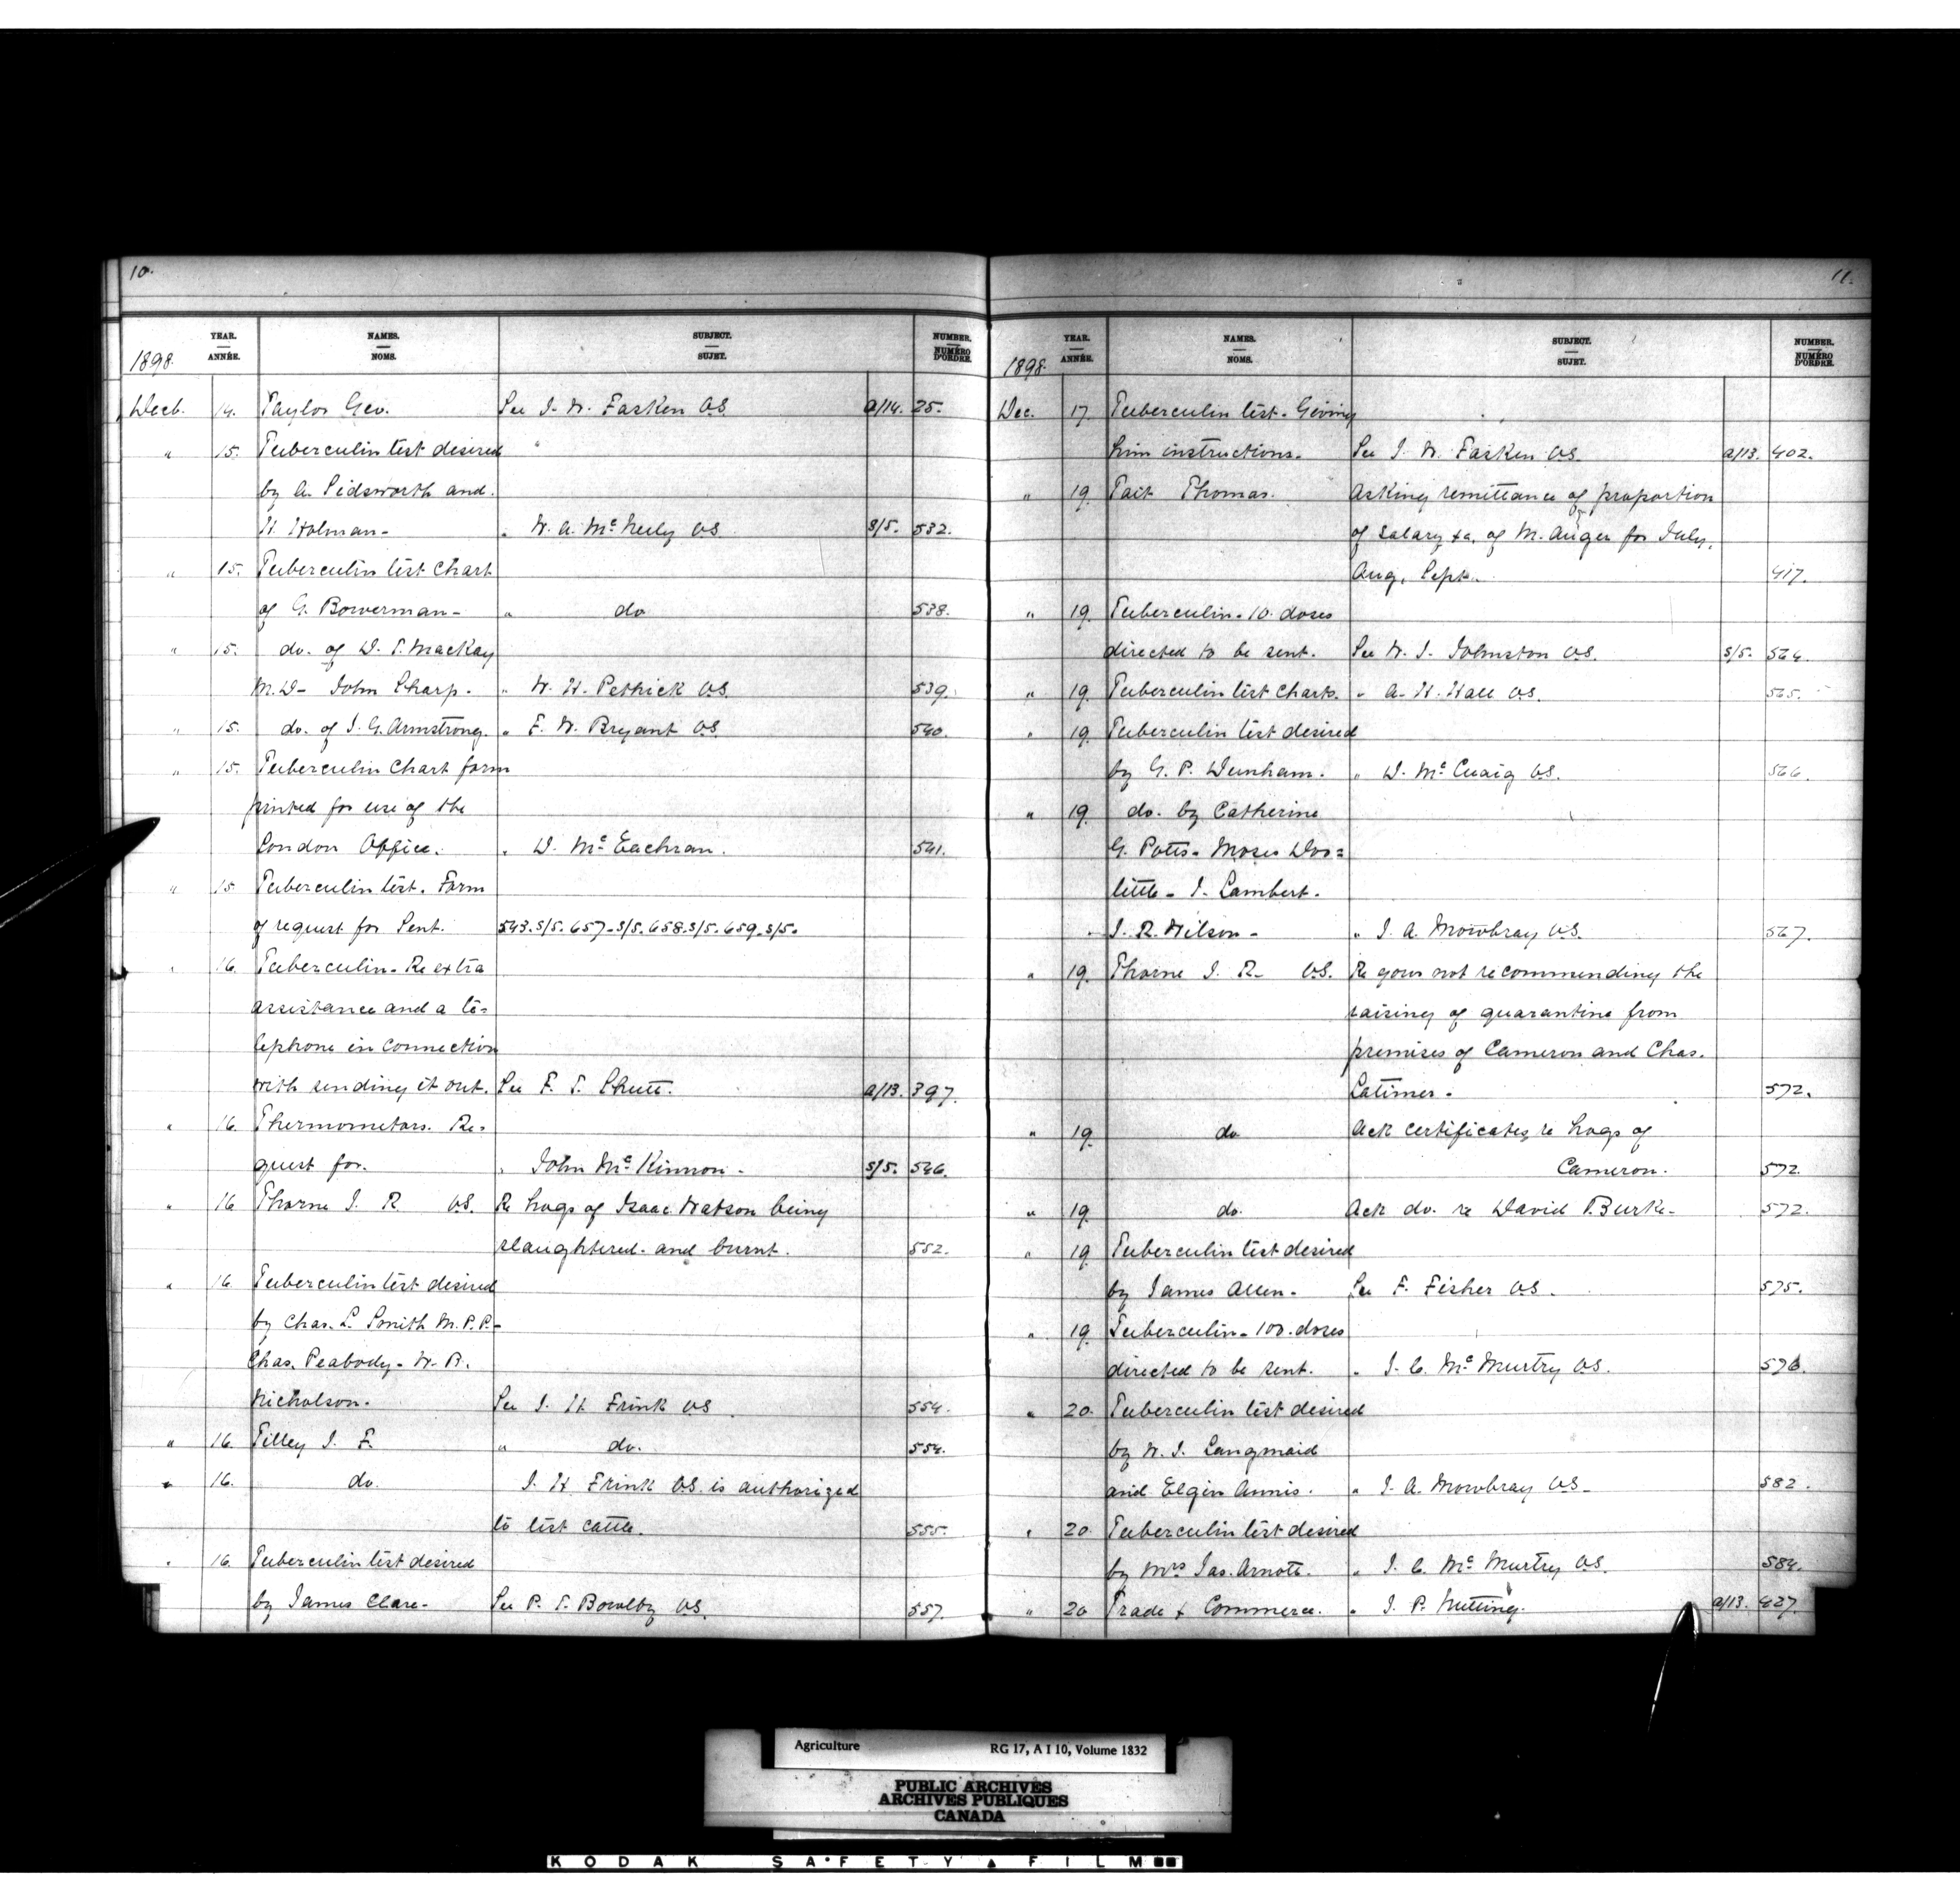 10.
YEAR. NAMES. SUBJECT. NUMBER.
ANNÉE. NOMS. SUJET. NUMÉRO D'ORDRE.
1898.
Decb. 14. Taylor Geo. See J. W. Fasken V.S. a/14. 25.
" 15. Tuberculin test desired "
by A. Pidsworth and
H. Holman - " W. A. McNeily V.S. S/5. 532.
" 15. Tuberculin test Chart
of G. Bowerman - " do 538.
" 15. do. of D. T. MacKay
M.D - John Sharp. " W. H. Pethick V.S. 539.
" 15. do. of J. G. Armstrong. " F. W. Bryant V.S. 540.
" 15. Tuberculin Chart form
printed for use of the
London Office. " D. McEachran. 541.
" 15. Tuberculin test. Form
of request for Sent. 543. S/5. 657- S/5. 658. S/5. 659. S/5.
" 16. Tuberculin - Re extra
assistance and a te-
lephone in connection
with sending it out. See F. T. Shutt. a/13. 397.
" 16. Thermometers. Re-
quest for. " John McKinnon - S/5. 546.
" 16 Thorne J. R. V.S. Re hogs of Isaac Watson being
slaughtered and burnt. 552.
" 16. Tuberculin test desired
by Chas. L. Smith M.P.P. -
Chas. Peabody - W. B.
Nicholson. See J. H. Frink V.S. 554.
" 16. Tilley J. F. " do. 554.
" 16. do. J. H. Frink V.S. is authorized
to test cattle. 555.
" 16. Tuberculin test desired
by James Clare - See P. T. Bowlby V.S. 557.
11.
YEAR. NAMES. SUBJECT. NUMBER.
ANNÉE. NOMS. SUJET. NUMÉRO D'ORDRE.
1898.
Dec. 17. Tuberculin test - Giving
him instructions. See J. W. Fasken V.S. a/13. 402.
" 19. Tait Thomas. Asking remittance of proportion
of salary &c, of M. Auger for July,
Aug, Sept. 417.
" 19. Tuberculin - 10. doses
directed to be sent. See W. J. Johnston V.S. S/5. 564.
" 19. Tuberculin test Charts. " A. H. Hall V.S. 565.
" 19. Tuberculin test desired
by G. P. Dunham. " D. McCuaig V.S. 566.
" 19. do. by Catherine
G. Potts - Moses Doo=
little - J. Lambert.
J. R. Wilson - " J. A. Mowbray V.S. 567.
" 19. Thorne J. R. V.S. Re your not recommending the
raising of quarantine from
premises of Cameron and Chas.
Latimer. 572.
" 19. do Ack certificates, re hogs of
Cameron. 572.
" 19. do. Ack do. re David Burke - 572.
" 19 Tuberculin test desired
by James Allen - See F. Fisher V.S. 575.
" 19. Tuberculin - 100. doses
directed to be sent. " J. C. McMurtry V.S. 576.
" 20. Tuberculin test desired
by W. J. Langmaid
and Elgin Annis. " J. A. Mowbray V.S. 582.
" 20 Tuberculin test desired
by Mrs Jas. Arnott. " J. C. McMurtry V.S. 584.
" 20 Trade & Commerce. " J. P. Nutting. a/13. 427.
Agriculture RG 17, A I 10, Volume 1832
PUBLIC ARCHIVES
ARCHIVES PUBLIQUES
CANADA
KODAK SAFETY FILM